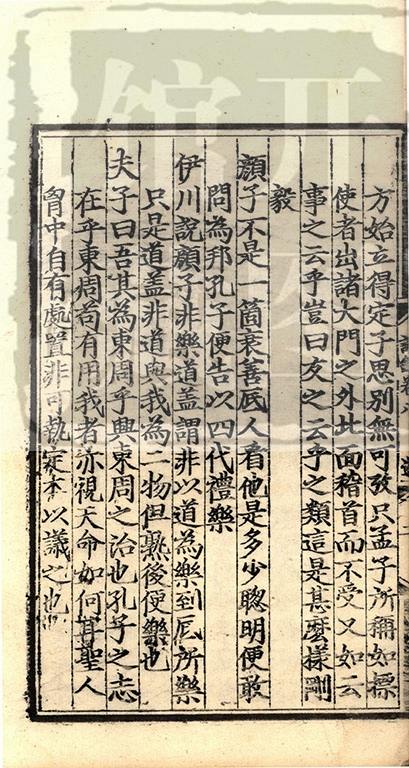 方始立得定子思別無可攷只孟子所稱如摽
使者出諸大門之外北面稽首而不受又如云
事之云乎豈曰友之云乎之類這是甚麽樣剛
毅
顔子不是一箇衰善底人看他是多少聦明便敢
問為邦孔子便告以四代禮樂
伊川說顔子非樂道盖謂非以道為樂到底所樂
只是道盖非道與我為二物但熟後便樂也
夫子曰吾其為東周乎興東周之治也孔子之志
在乎東周苟有用我者亦視天命如何耳聖人
胷中自有處置非可執定本以議之也